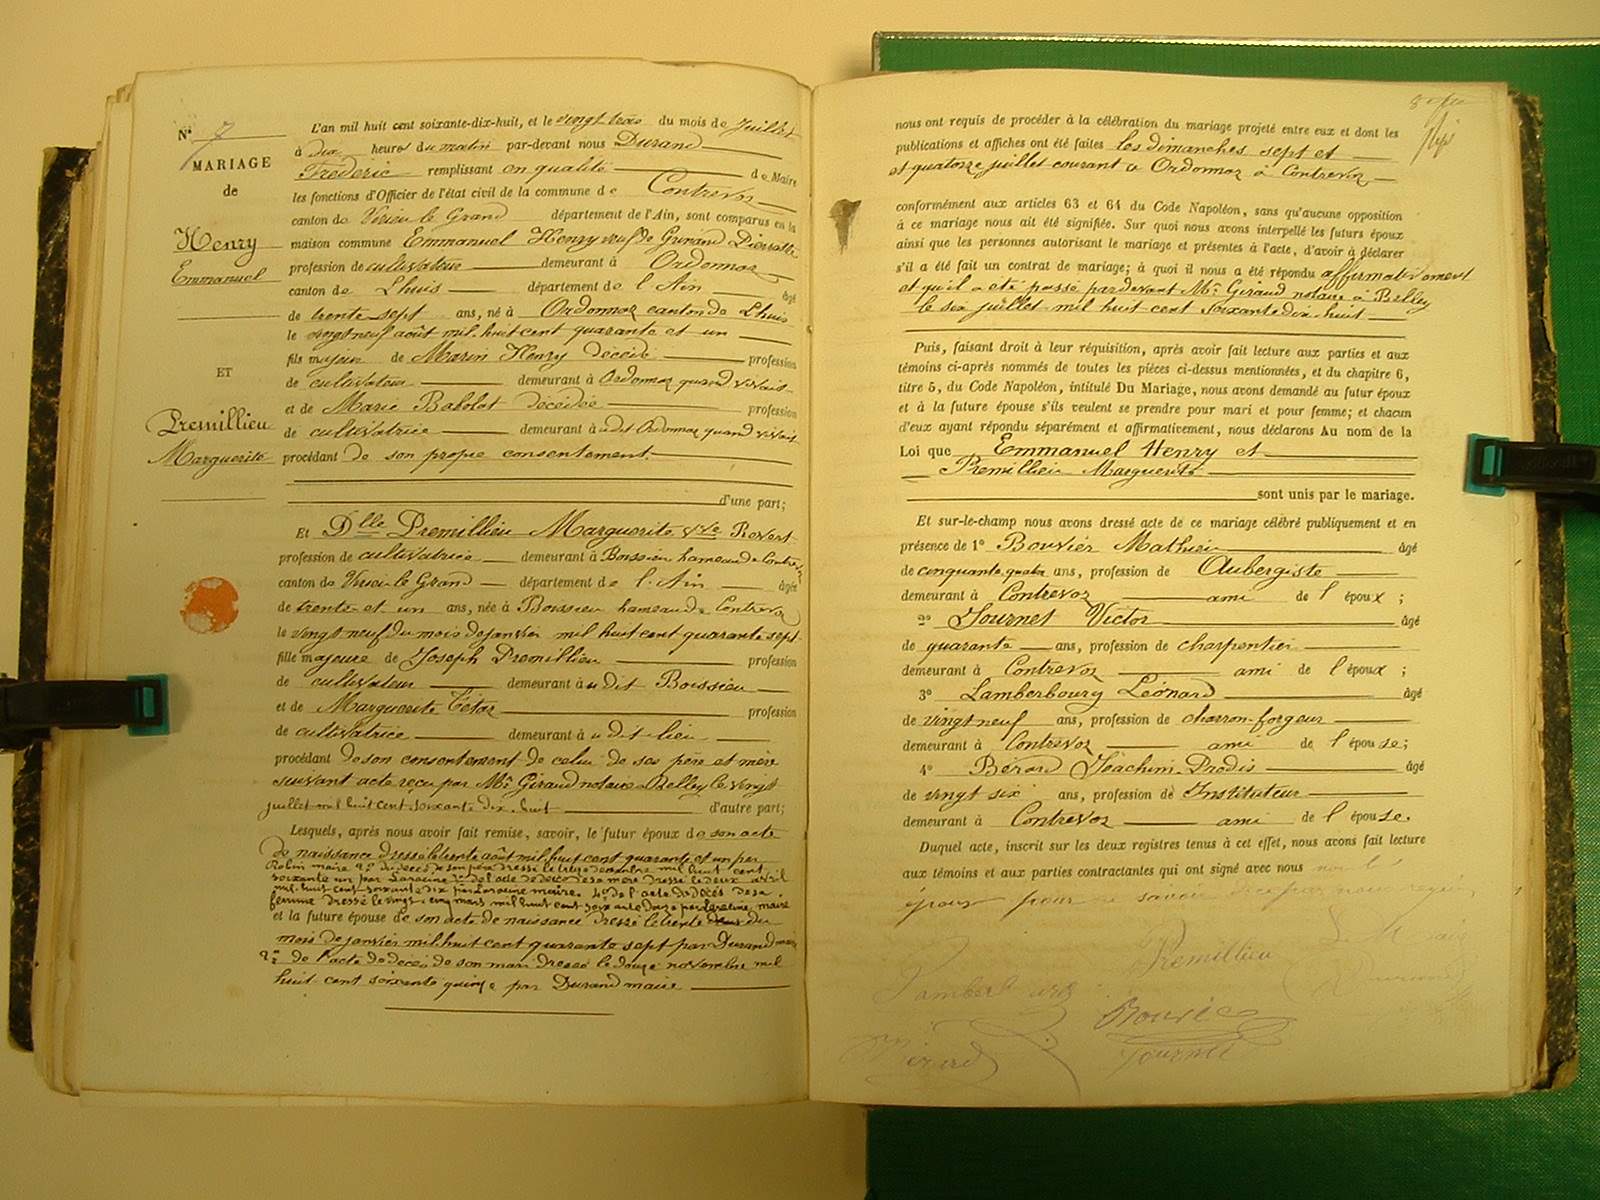 N° 7
MARIAGE
de
Henry
Emmanuel
ET
Premillieu
Marguerite
L'an mil huit cent soixante-dix-huit, et le vingt trois du mois de Juillet
à dix heures du matin par-devant nous Durand
Frédéric remplissant en qualité de Maire
les fonctions d'Officier de l'état civil de la commune de Contrevoz
canton de Virieu le Grand département de l'Ain, sont comparus en la
maison commune Emmanuel Henry veuf de
profession de cultivateur demeurant à Ordonnaz
canton de Lhuis département de l'Ain âgé
de trente sept ans, né à Ordonnaz canton de Lhuis
le vingt neuf août mil huit cent quarante et un
fils majeur de Marin Henry décédé profession
de cultivateur demeurant à Ordonnaz quand vivait
et de Marie Babolat décédée profession
de cultivatrice demeurant à udit Ordonnaz quand vivait
procédant de son propre consentement
d'une part;
Et Dlle Premillieu Marguerite vve
profession de cultivatrice demeurant à Boissieu hameau de Contrevoz
canton de Virieu le Grand département de l'Ain âgée
de trente et un ans, née à Boissieu hameau de Contrevoz
le vingt neuf du mois de janvier mil huit cent quarante sept
fille majeure de Joseph Premillieu profession
de cultivateur demeurant à udit Boissieu
et de Marguerite Tétaz profession
de cultivatrice demeurant à udit lieu
procédant de son consentement de celui de ses père et mère
suivant acte reçu par Mr Giraud notaire à Belley le vingt
juillet mil huit cent soixante dix huit d'autre part;
Lesquels, après nous avoir fait remise, savoir, le futur époux de son acte
de naissance dressé le trente août mil huit cent quarante et un par
Robin maire 2° du décès de son père dressé le treize décembre mil huit cent
soixante un par 3° de l'acte de décès de sa mère dressé le deux avril
mil huit cent soixante dix par maire. 4° de l'acte de décès de sa
femme dressé le vingt cinq mars mil huit cent soixante douze par maire
et la future épouse de son acte de naissance dressé le trente du
mois de janvier mil huit cent quarante sept par Durand maire
2° de l'acte de décès de son mari dressé le douze novembre mil
huit cent soixante quinze par Durand maire
nous ont requis de procéder à la célébration du mariage projeté entre eux et dont les
publications et affiches ont été faites les dimanches sept et
et quatorze juillet courant à Ordonnaz à Contrevoz
conformément aux articles 63 et 64 du Code Napoléon, sans qu'aucune opposition
à ce mariage nous ait été signifiée. Sur quoi nous avons interpellé les futurs époux
ainsi que les personnes autorisant le mariage et présentes à l'acte, d'avoir à déclarer
s'il a été fait un contrat de mariage; à quoi il nous a été répondu affirmativement
et qu'il a été passé pardevant Mr Giraud notaire à Belley
le six juillet mil huit cent soixante dix huit
Puis, faisant droit à leur réquisition, après avoir fait lecture aux parties et aux
témoins ci-après nommés de toutes les pièces ci-dessus mentionnées, et du chapitre 6,
titre 5, du Code Napoléon, intitulé Du Mariage, nous avons demandé au futur époux
et à la future épouse s'ils veulent se prendre pour mari et pour femme; et chacun
d'eux ayant répondu séparément et affirmativement, nous déclarons Au nom de la
Loi que Emmanuel Henry et
Premillieu Marguerite
sont unis par le mariage.
Et sur-le-champ nous avons dressé acte de ce mariage célébré publiquement et en
présence de 1° Bouvier Mathieu âgé
de cinquante quatre ans, profession de Aubergiste
demeurant à Contrevoz ami de l'époux ;
2° Journet Victor âgé
de quarante ans, profession de charpentier
demeurant à Contrevoz ami de l'époux ;
3° Lamberbourg Léonard âgé
de vingt neuf ans, profession de charron-forgeur
demeurant à Contrevoz ami de l'épouse;
4° Bérard Joachim Prodis âgé
de vingt six ans, profession de Instituteur
demeurant à Contrevoz ami de l'épouse.
Duquel acte, inscrit sur les deux registres tenus à cet effet, nous avons fait lecture
aux témoins et aux parties contractantes qui ont signé avec nous
époux pour ne savoir de ce par nous requis
Premillieu
Bouvier
Bérard
Journet